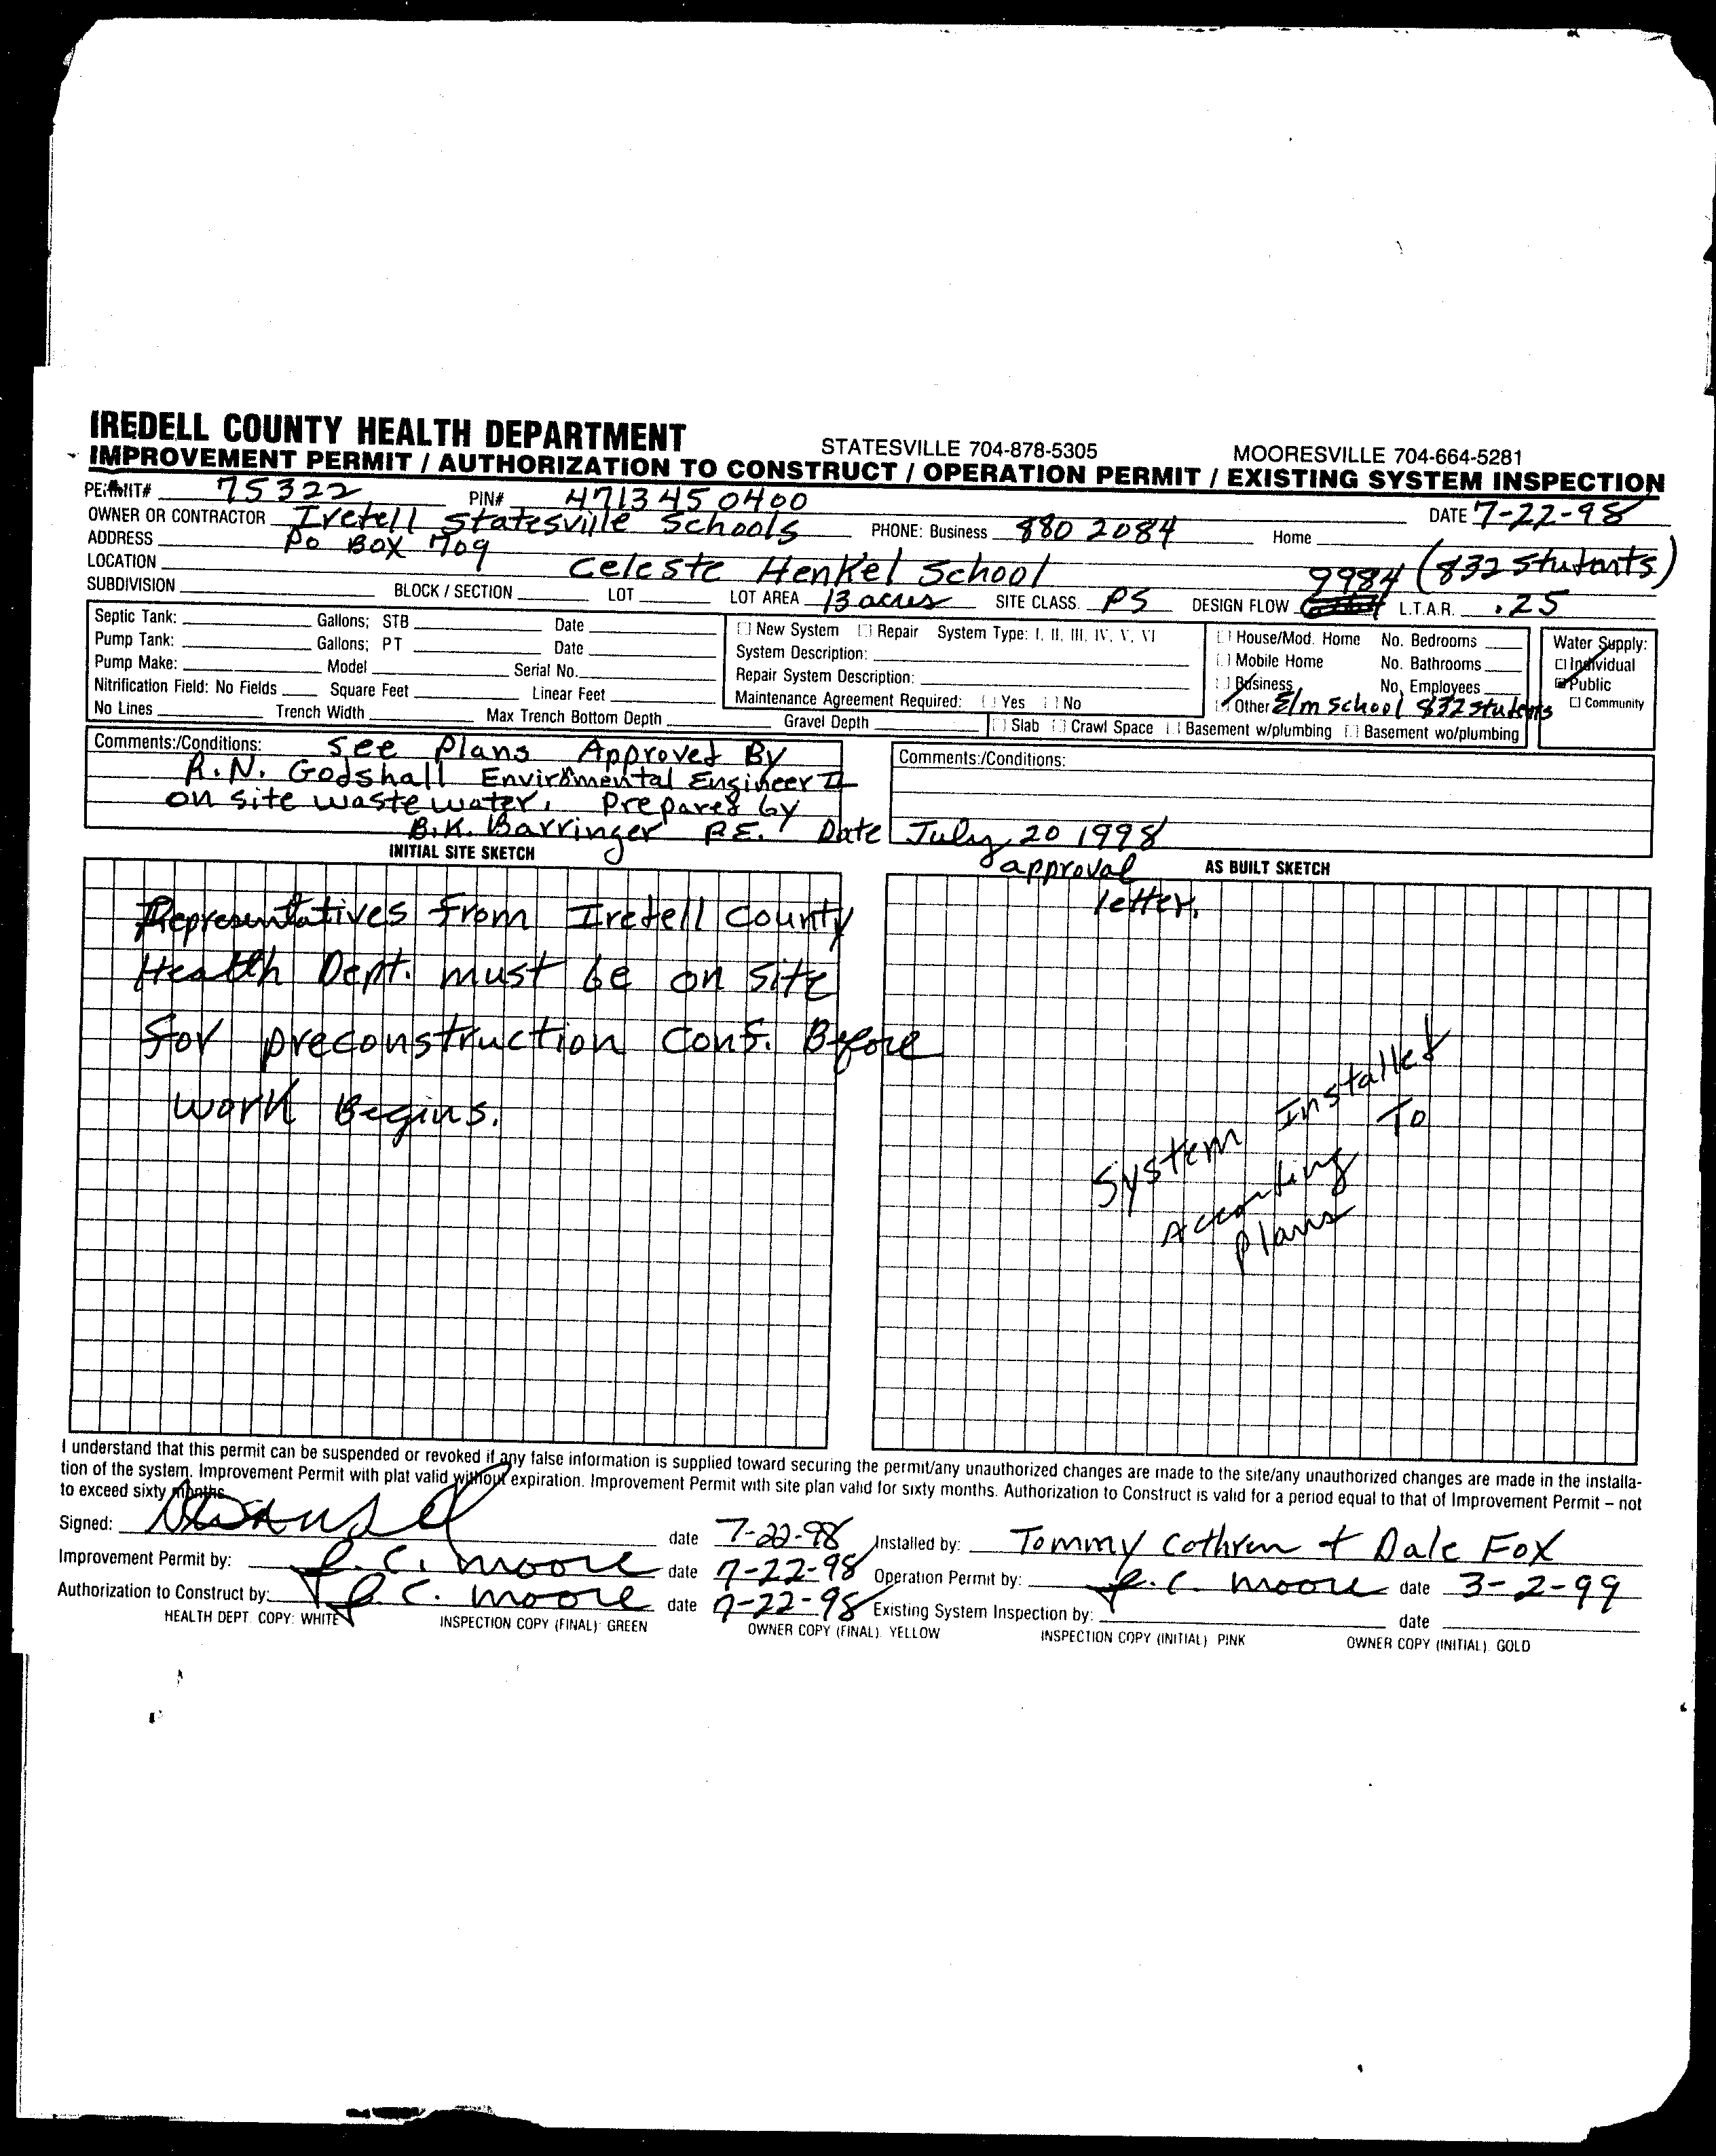 IREDELL COUNTY HEALTH DEPARTMENT STATESVILLE 704-878-5305 MOORESVILLE 704-664-5281
IMPROVEMENT PERMIT / AUTHORIZATION TO CONSTRUCT / OPERATION PERMIT / EXISTING SYSTEM INSPECTION
PERMIT# 75322 PIN# 4713450400 DATE 7-22-98
OWNER OR CONTRACTOR Iredell Statesville Schools PHONE: Business 880 2084 Home
ADDRESS PO BOX 709
LOCATION Celeste Henkel School 9984 (832 Students)
SUBDIVISION BLOCK / SECTION LOT LOT AREA 13 acres SITE CLASS. PS DESIGN FLOW L.T.A.R. .25
Septic Tank: Gallons; STB Date
Pump Tank: Gallons; PT Date
Pump Make: Model Serial No.
Nitrification Field: No Fields Square Feet Linear Feet
No Lines Trench Width Max Trench Bottom Depth Gravel Depth
New System Repair System Type: I, II, III, IV, V, VI
System Description:
Repair System Description:
Maintenance Agreement Required: Yes No
House/Mod. Home No. Bedrooms
Mobile Home No. Bathrooms
Business No. Employees
Other Elm School 832 students
Slab Crawl Space Basement w/plumbing Basement wo/plumbing
Water Supply:
Individual
Public
Community
Comments:/Conditions: See Plans Approved By
R.N. Godshall Enviromental Engineer II
on site wastewater. Prepared by
B.K. Barringer P.E. Date July 20 1998
approval
letter.
Comments:/Conditions:
INITIAL SITE SKETCH
Representatives From Iredell County
Health Dept. must be on site
for preconstruction conf. Before
work Begins.
AS BUILT SKETCH
System Installed
According To
plans
I understand that this permit can be suspended or revoked if any false information is supplied toward securing the permit/any unauthorized changes are made to the site/any unauthorized changes are made in the installa-
tion of the system. Improvement Permit with plat valid without expiration. Improvement Permit with site plan valid for sixty months. Authorization to Construct is valid for a period equal to that of Improvement Permit – not
to exceed sixty months.
Signed: date 7-22-98 Installed by: Tommy Cothren + Dale Fox
Improvement Permit by: R.C. Moore date 7-22-98 Operation Permit by: R.C. Moore date 3-2-99
Authorization to Construct by: R.C. Moore date 7-22-98 Existing System Inspection by: date
HEALTH DEPT. COPY: WHITE INSPECTION COPY (FINAL): GREEN OWNER COPY (FINAL) YELLOW INSPECTION COPY (INITIAL) PINK OWNER COPY (INITIAL) GOLD